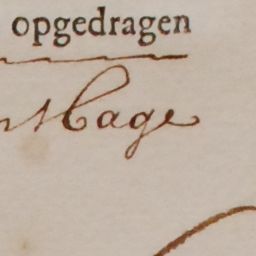 opgedragen
s Hage